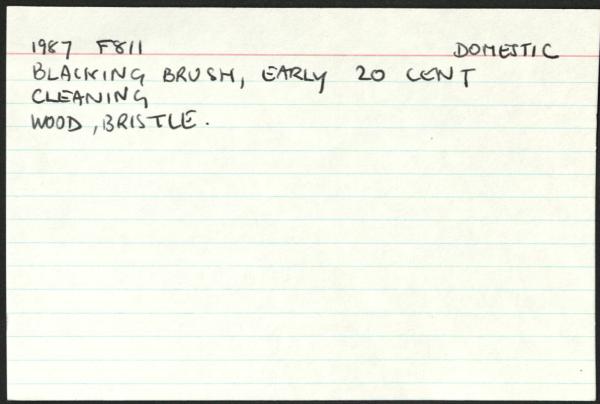 1987 F811 DOMESTIC
BLACKING BRUSH, EARLY 20 CENT
CLEANING
WOOD, BRISTLE.